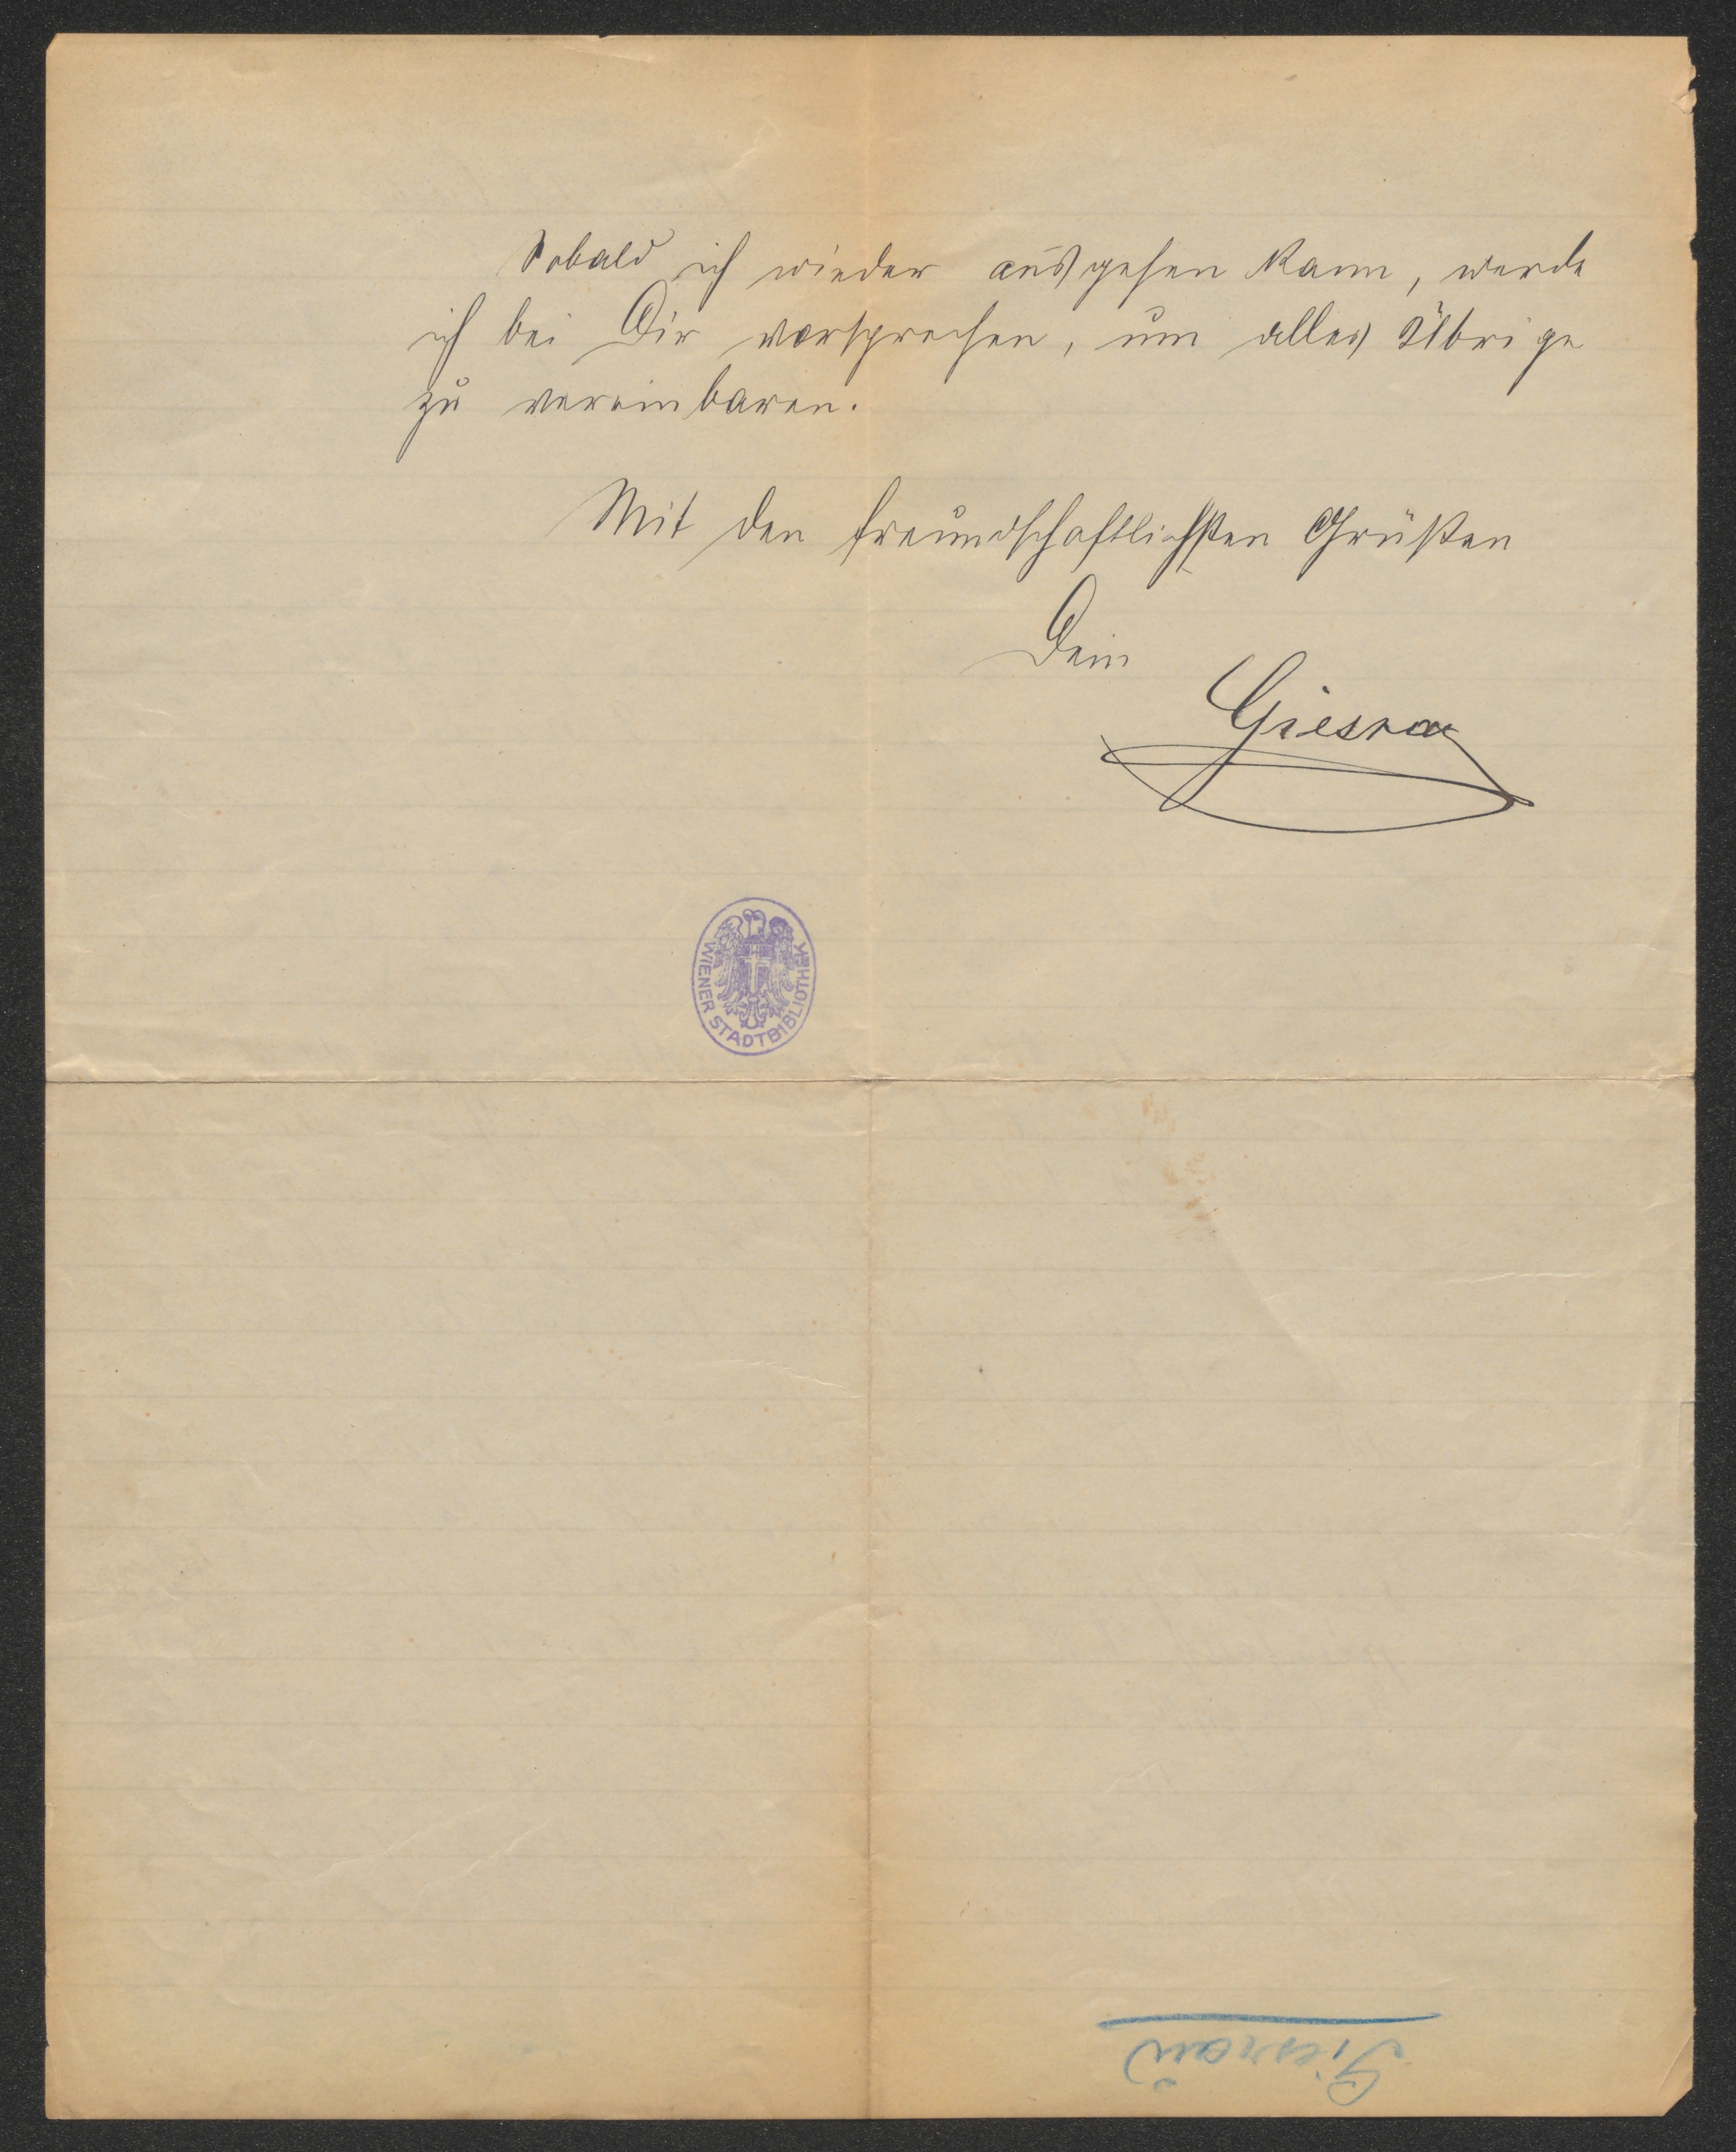 Sobald ich wieder ausgehen kann, werde
ich bei Dir vorsprechen, um alles Übrige
zu vereinbaren.
Mit den freundschaftlichsten Grüßen
Dein
WIENER STADTBIBLIOTHEK